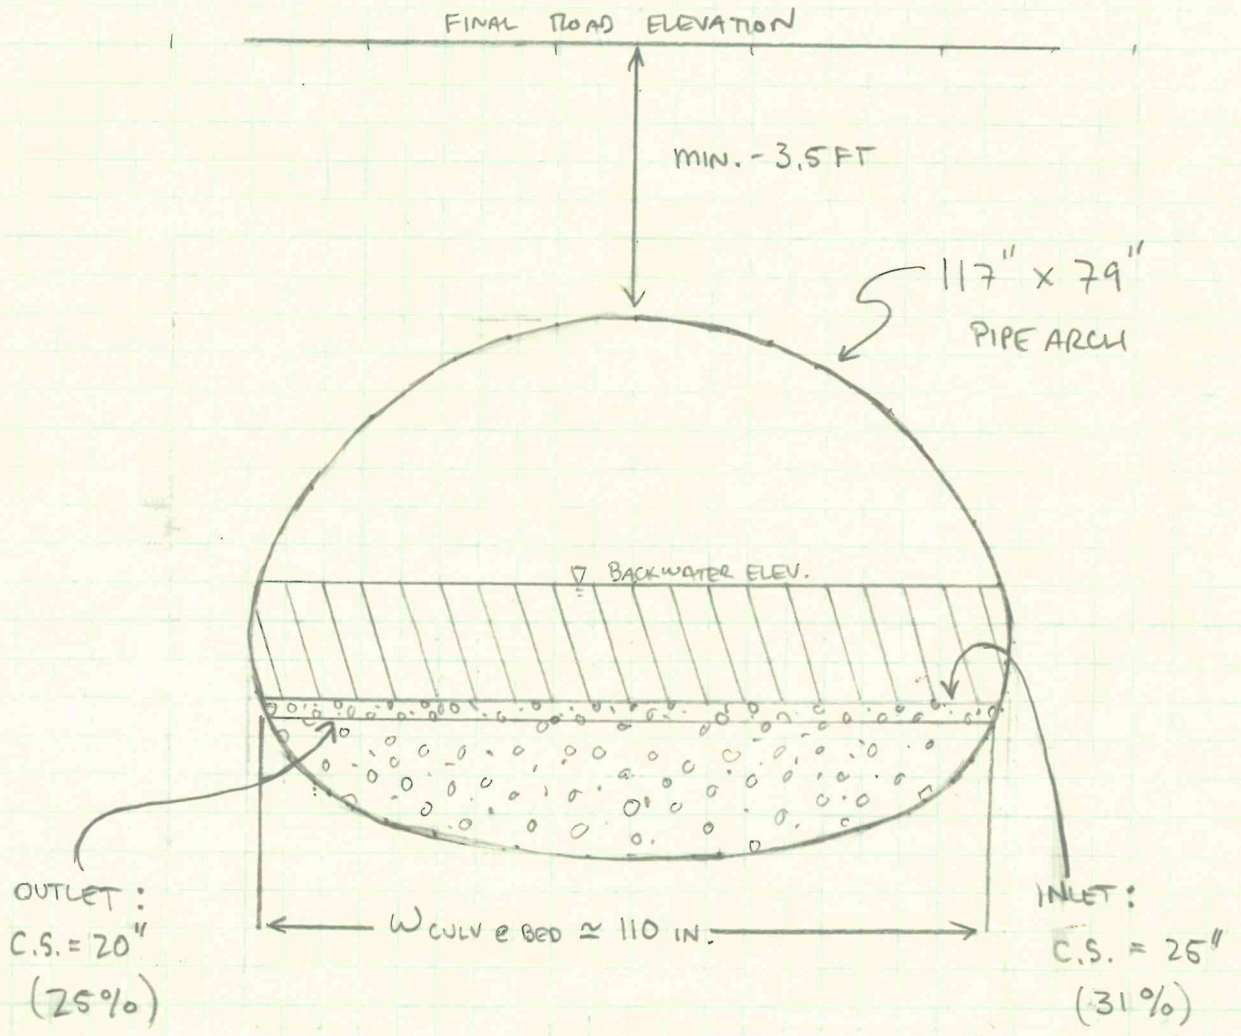 FINAL ROAD ELEVATION
MIN. - 3.5 FT
117" x 79"
PIPE ARCH
▽ BACKWATER ELEV.
OUTLET:
C.S. = 20"
(25%)
W CULV @ BED ≃ 110 IN.
INLET:
C.S. = 25"
(31%)